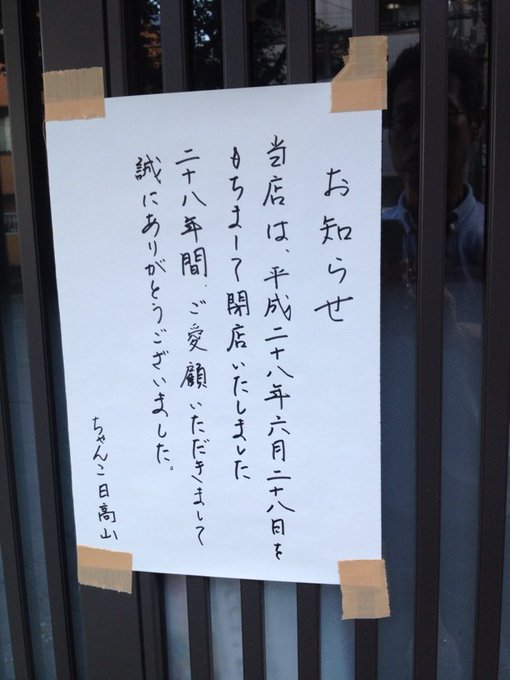 お知らせ
当店は、平成二十八年六月二十八日を
もちまして閉店いたしました
二十八年間、ご愛顧いただきまして
誠にありがとうございました。
ちゃんこ日高山